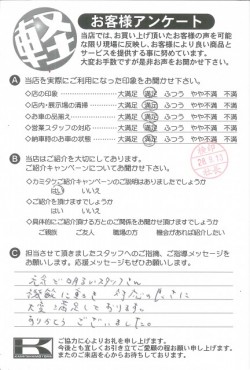 軽
お客様アンケート
当店では、お買い上げ頂いたお客様の声を可能
な限り現場に反映し、お客様により良い商品と
サービスを提供する事に努めています。
大変お手数ですが是非お声をお聞かせ下さい。
A 当店を実際にご利用になった印象をお聞かせ下さい。
◇店の印象 大満足 満足 ふつう やや不満 不満
◇店内・展示場の清掃 大満足 満足 ふつう やや不満 不満
◇お車の品揃え 大満足 満足 ふつう やや不満 不満
◇営業スタッフの対応 大満足 満足 ふつう やや不満 不満
◇納車時のお車の状態 大満足 満足 ふつう やや不満 不満
B 当店はご紹介を大切にしております。
ご紹介キャンペーンについてお聞かせ下さい。
◇カミタケご紹介キャンペーンのご説明はありましたでしょうか
はい いいえ
◇ご紹介を頂けますでしょうか
はい いいえ
◇具体的にご紹介頂ける方とのご関係をお聞かせ頂けますでしょうか
ご親族 ご友人 職場の方 機会があれば紹介したい
C 担当させて頂きましたスタッフへのご指摘、ご指導メッセージを
お願いします。応援メッセージもぜひお願いします。
元気で明るいスタッフさん
大変満足しております。
ありがとうございました。
K
ご協力に心よりお礼を申します。
今後とも宜しくお引き立てご愛顧の程お願い申し上げます。
またのご来店を心からお待ちしております。